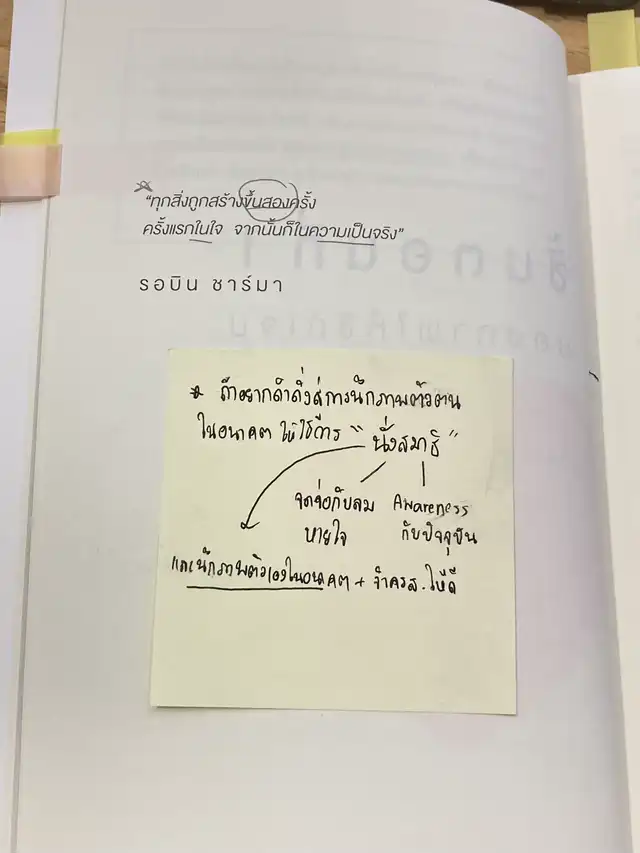 "ทุกสิ่งถูกสร้างขึ้นสองครั้ง
ครั้งแรกในใจ จากนั้นก็ในความเป็นจริง"
รอบิน ชาร์มา
* ถ้าอยากดำดิ่งสู่การนึกภาพตัวตน
ในอนาคต ให้ใช้การ "นั่งสมาธิ"
จดจ่อกับลม
หายใจ
Awareness
กับปัจจุบัน
และนึกภาพตัวเองในอนาคต + จำครส. ให้ดี